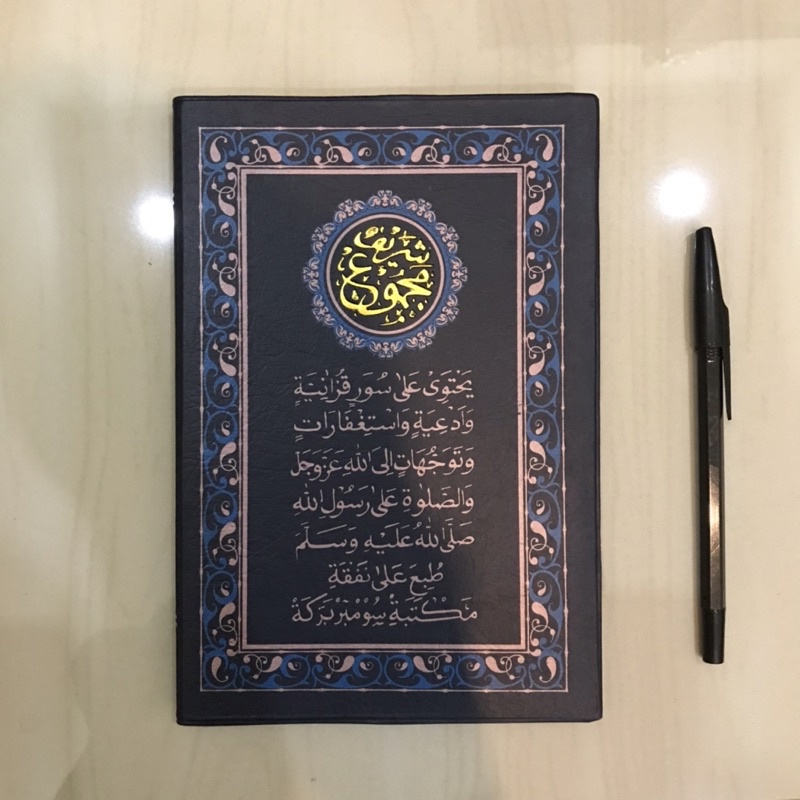 مجموع
شريف
يَحْتَوِىْ عَلَى سُوَرٍ قُرْاٰنِيَةٍ
وَاَدْعِيَةٍ وَاسْتِغْفَارَاتٍ
وَتَوَجُّهَاتٍ اِلَى اللهِ عَزَّوَجَلَ
وَالصَّلٰوةِ عَلٰى رَسُوْلِ اللهِ
صَلَّى اللهُ عَلَيْهِ وَسَلَّمَ
طُبِعَ عَلٰى نَفَقَةِ
مَكْتَبَةْ سُوْمْبَرْ بَرَكَةْ